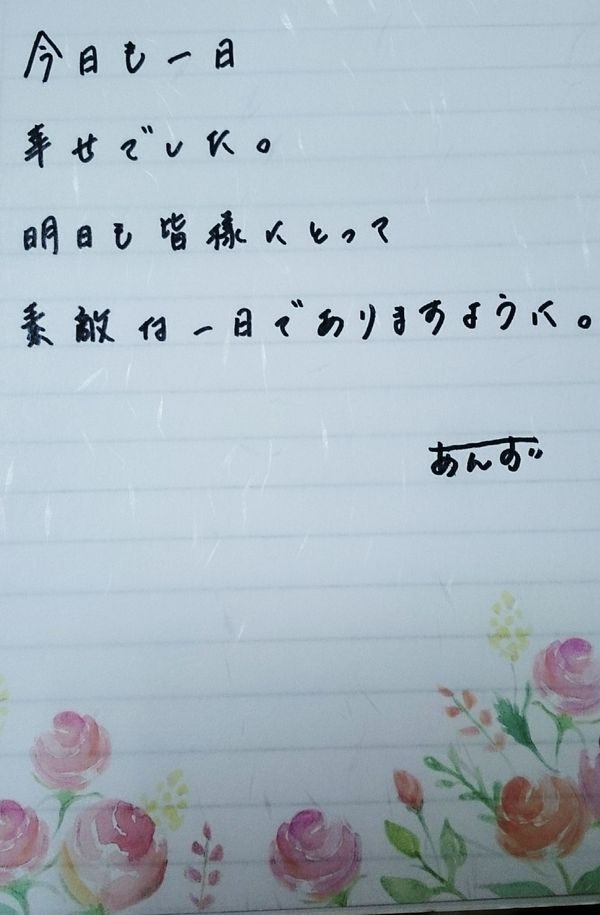 今日も一日
幸せでした。
明日も皆様にとって
素敵な一日でありますように。
あんず